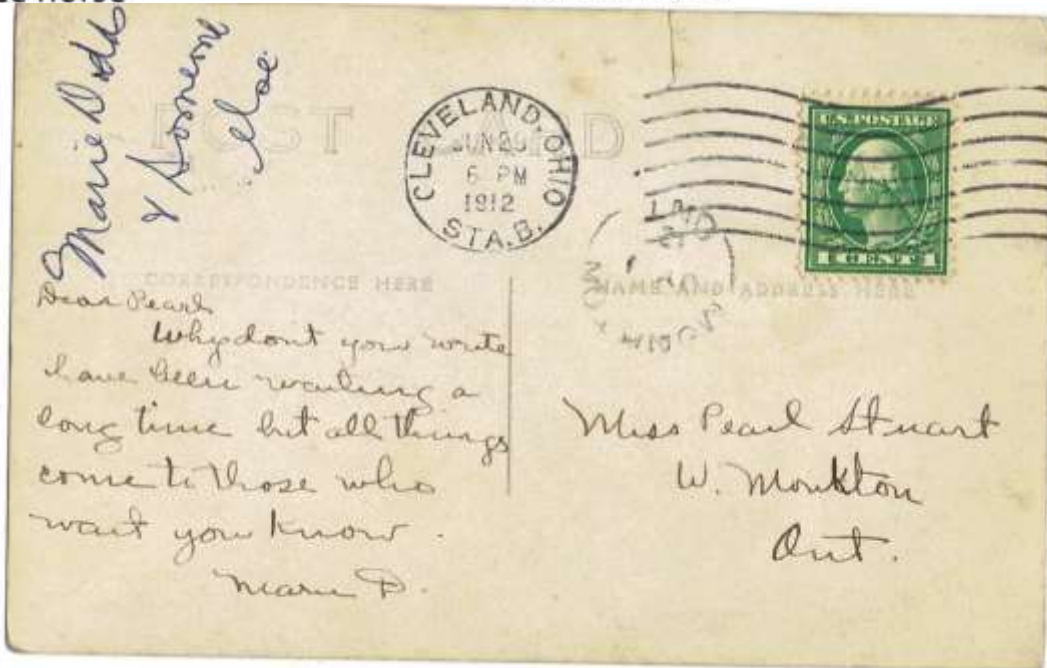 Marie Dodds
&
POST CARD
CLEVELAND, OHIO
JUN 20
6 PM
1912
STA. B.
U.S. POSTAGE
1 CENT 1
CORRESPONDENCE HERE
NAME AND ADDRESS HERE
Dear Pearl
Why dont you write
have been waiting a
long time but all things
come to those who
wait you know.
Marie D.
Miss Pearl Stuart
W. Monkton
Ont.